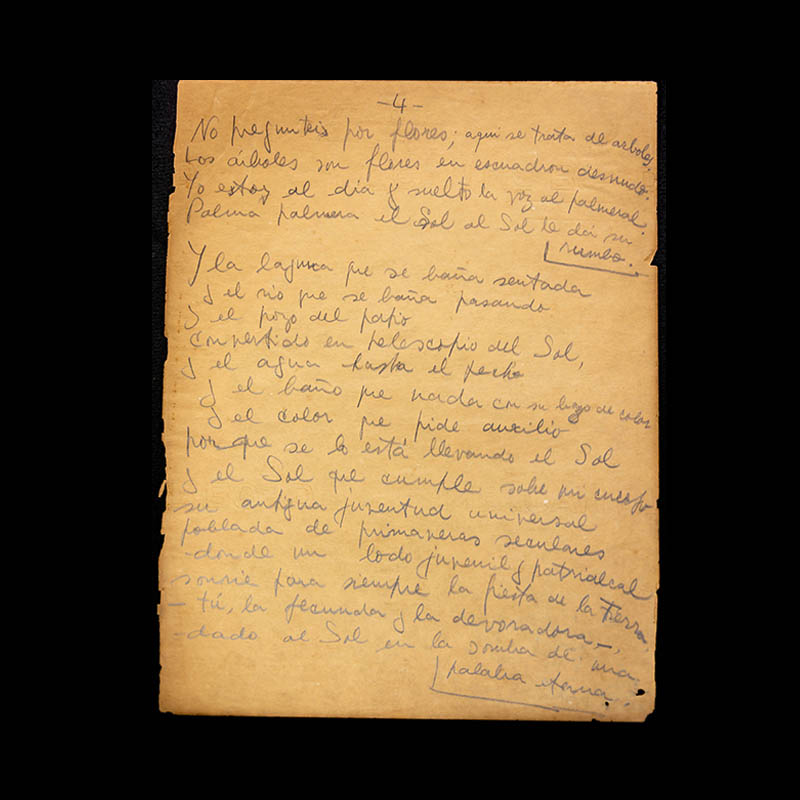 -4-
No preguntéis por flores; aquí se trata de árboles.
Los árboles son flores en escuadrón desnudo.
Yo estoy al día y suelto la voz al palmeral.
Palma palmera el Sol al Sol le da su
rumbo.
Y la laguna que se baña sentada
y el río que se baña pasando
y el pozo del patio
convertido en telescopio del Sol,
y el agua hasta el pecho
y el baño que nada con su lazo de color
y el color que pide auxilio
por que se lo está llevando el Sol
y el Sol que cumple sobre mi cuerpo
su antigua juventud universal
poblada de primaveras seculares
donde un lodo juvenil y patriarcal
sonríe para siempre la fiesta de la tierra,
- tú, la fecunda y la devoradora -,
dado al Sol en la sombra de una
palabra eterna.